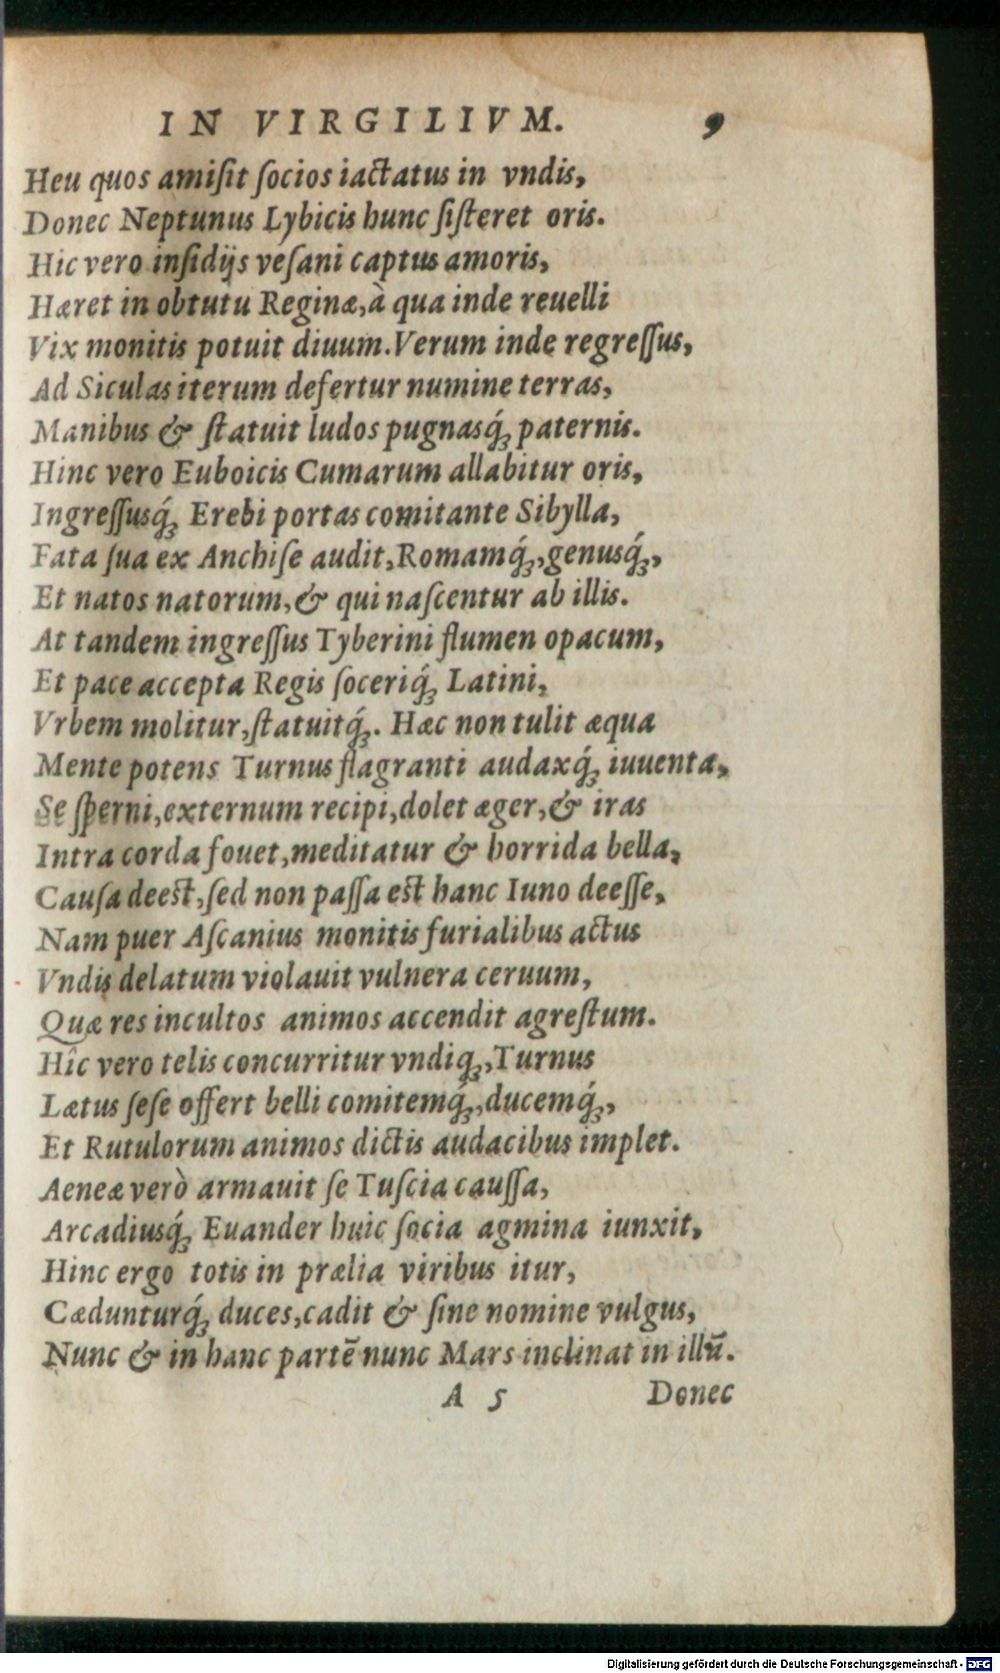 IN VIRGILIVM. 9
Heu quos amiſit ſocios iactatus in vndis,
Donec Neptunus Lybicis hunc ſiſteret oris.
Hic vero inſidijs veſani captus amoris,
Hæret in obtutu Reginæ, à qua inde reuelli
Vix monitis potuit diuum. Verum inde regreſſus,
Ad Siculas iterum defertur numine terras,
Manibus & ſtatuit ludos pugnasq́ꝫ paternis.
Hinc vero Euboicis Cumarum allabitur oris,
Ingreſſusq́ꝫ Erebi portas comitante Sibylla,
Fata ſua ex Anchiſe audit, Romamq́ꝫ, genusq́ꝫ,
Et natos natorum, & qui naſcentur ab illis.
At tandem ingreſſus Tyberini flumen opacum,
Et pace accepta Regis ſoceriq́ꝫ Latini,
Vrbem molitur, ſtatuitq́ꝫ. Hæc non tulit æqua
Mente potens Turnus flagranti audaxq́ꝫ iuuenta,
Se ſperni, externum recipi, dolet æger, & iras
Intra corda fouet, meditatur & horrida bella,
Cauſa deeſt, ſed non paſſa eſt hanc Iuno deeſſe,
Nam puer Aſcanius monitis furialibus actus
Vndis delatum violauit vulnera ceruum,
Quæ res incultos animos accendit agreſtum.
Hîc vero telis concurritur vndiqꝫ, Turnus
Lætus ſeſe offert belli comitemq́ꝫ, ducemq́ꝫ,
Et Rutulorum animos dictis audacibus implet.
Aeneæ verò armauit ſe Tuſcia cauſſa,
Arcadiusq́ꝫ Euander huic ſocia agmina iunxit,
Hinc ergo totis in prælia viribus itur,
Cædunturq́ꝫ duces, cadit & ſine nomine vulgus,
Nunc & in hanc partē nunc Mars inclinat in illū.
A 5 Donec
Digitalisierung gefördert durch die Deutsche Forschungsgemeinschaft - DFG